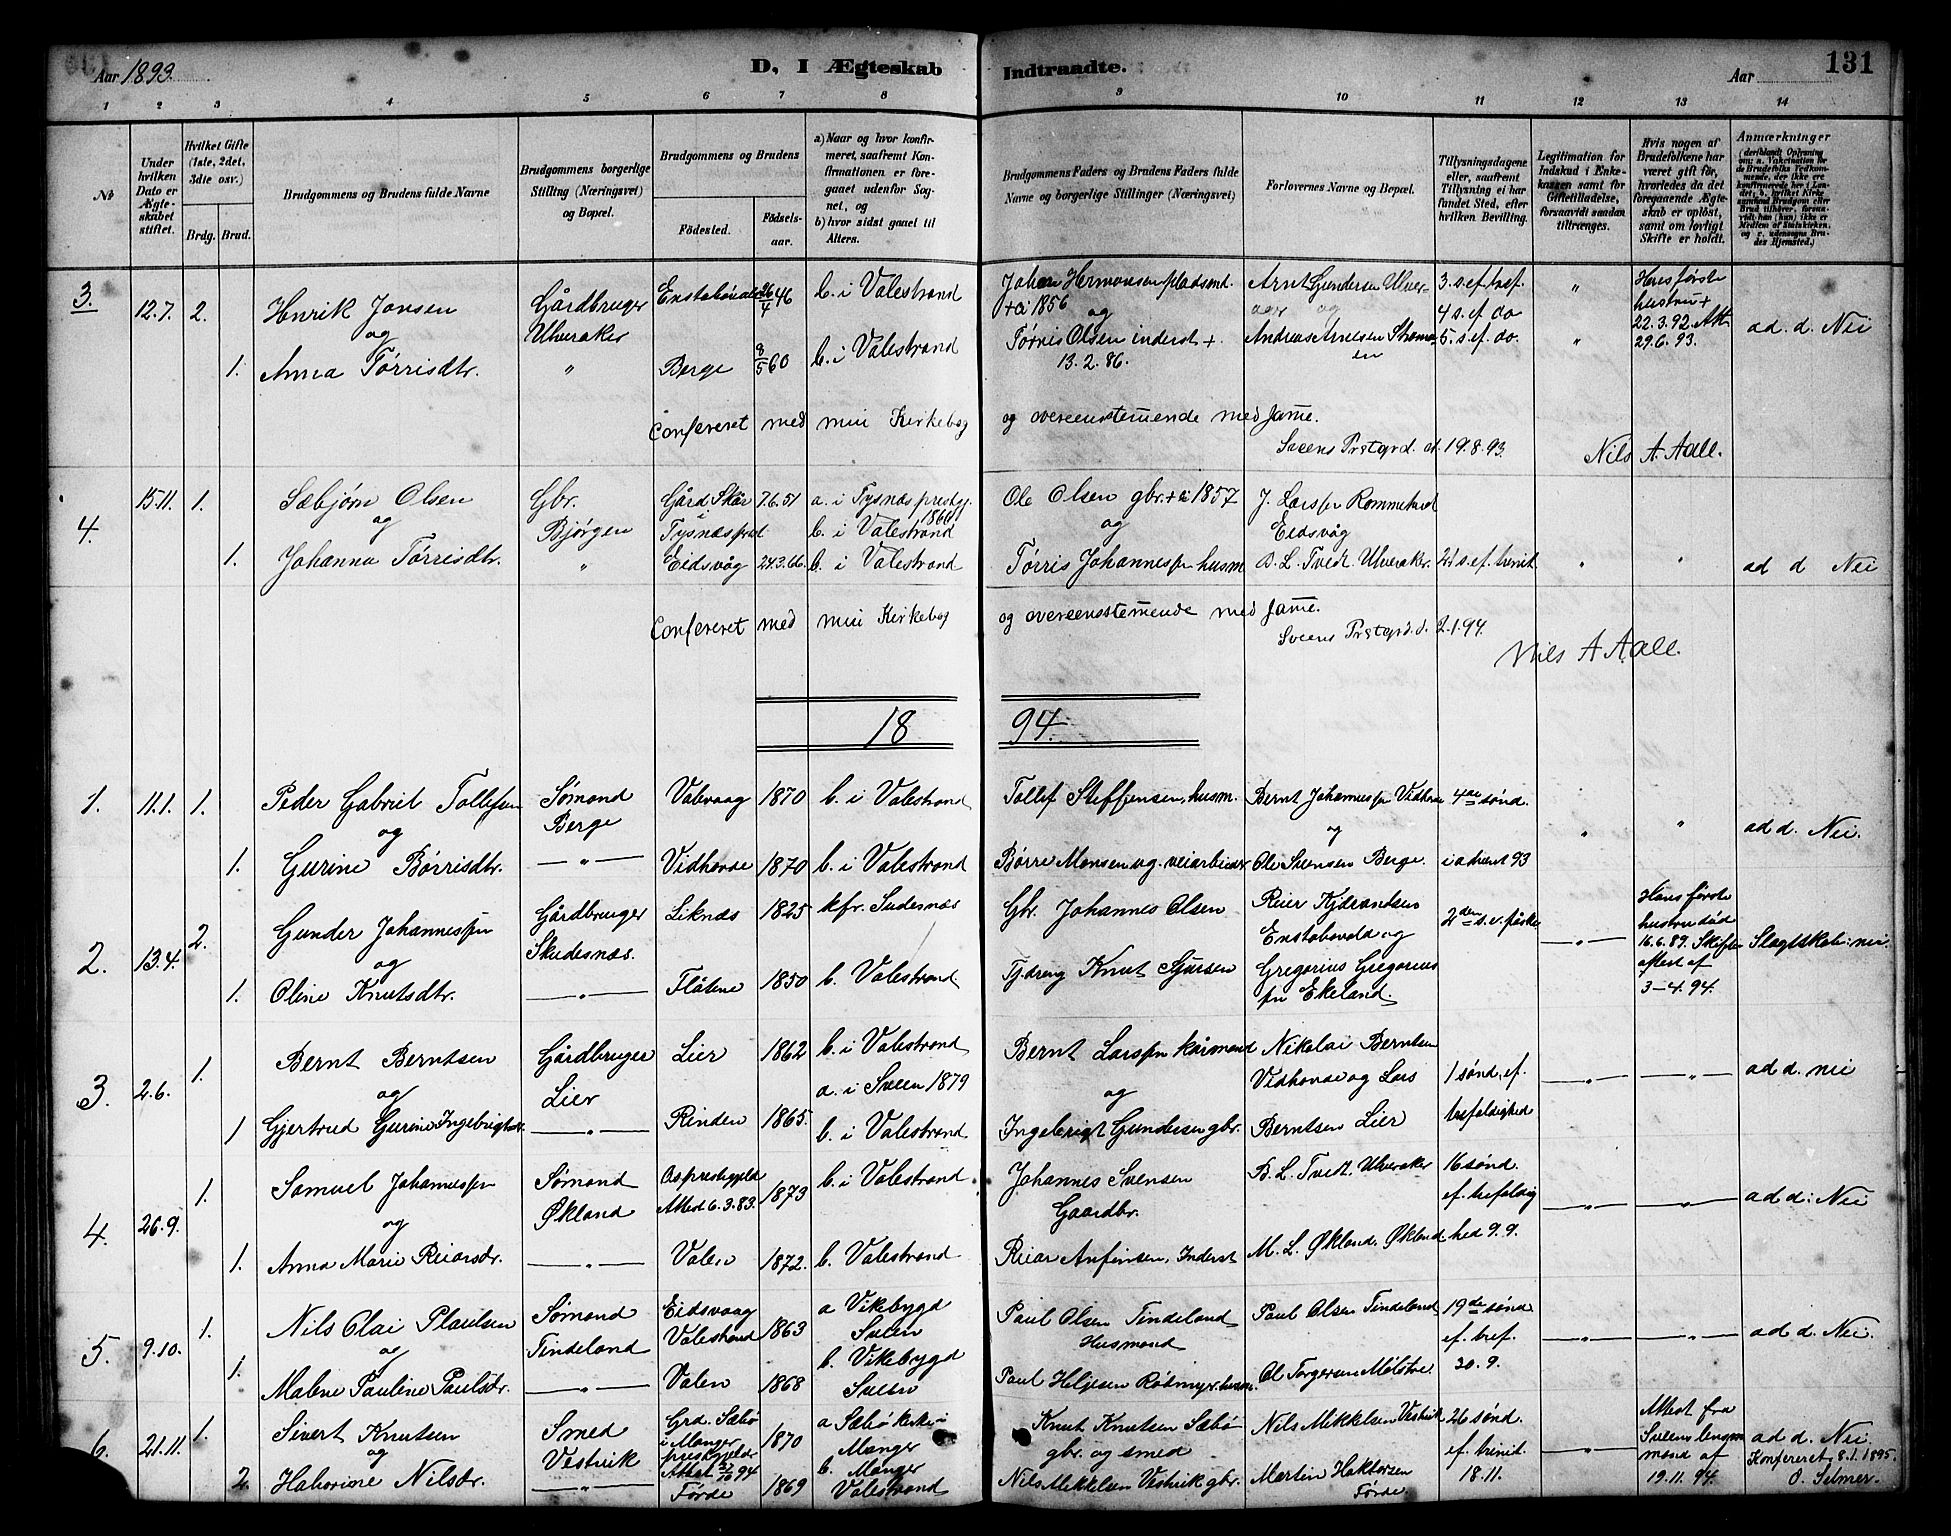 Aar 1893.
D, I Ægteskab Indtraadte.
Aar
131
1 2 3 4 5 6 7 8 9 10 11 12 13 14
№
Under hvilken Dato er Ægteskabet stiftet.
Hvilket Gifte (1ste, 2det, 3dte osv.)
Brdg. Brud.
Brudgommens og Brudens fulde Navne
Brudgommens borgerlige Stilling (Næringsvei) og Bopæl.
Brudgommens og Brudens
Födested.
Födselsaar.
a) Naar og hvor konfirmeret, saafremt Konfirmationen er foregaaet udenfor Sognet, og
b) hvor sidst gaaet til Alters.
Brudgommens Faders og Brudens Faders fulde Navne og borgerlige Stillinger (Næringsvei)
Forlovernes Navne og Bopæl.
Tillysningsdagene eller, saafremt Tillysning ei har fundet Sted, efter hvilken Bevilling.
Legitimation for Indskud i Enkekassen samt for Giftetilladelse, forsaavidt saadan tiltrænges.
Hvis nogen af Brudefolkene har været gift før, hvorledes da det foregaaende Ægteskab er oplöst, samt om lovligt Skifte er holdt.
Anmærkninger
3. 12.7. 2. Henrik Jonsen Gårdbruger 26/4 46 b. i Valestrand
og Ulveraker
1. Anna Tørrisdtr. " Berge 8/5 60 b. i Valestrand
+ Ci 1856 og
Tørris Olsen inderst + 13.2.86.
Arnt Gundersen Ulverager og
Andreas Arnesen
3. s. ef. tref.
4 s. ef. do
5. s. ef. do.
" "
Hans første hustru + 22.3.92. Att. 29.6.93.
ad. d. Nei
Confereret med min Kirkebog og overensstemende med same.
Sveens Prstgrd. d. 19.8.93.
Nils A. Aall.
4. 15.11. 1. Sæbjørn Olsen Gbr. Gård Skår 7.6.51 a. i Tysnæs prestgj. 1866
og Bjørgen i Tysnæs prst b. i Valestrand
1. Johanna Tørrisdtr. " Eidsvåg 24.3.66. b. i Valestrand
Ole Olsen gbr. + Ci 1857
og
Tørris Johannesssn husm
J. Larssn Rommetveit
Eidsvåg
B. L. Tvedt. Ulveraker. 21 s. ef. trinit " " ad d Nei
Confereret med min Kirkebog og overeensstemende med same.
Sveens Prstgrd. d. 2.1.94.
Nils A Aall.
18 94.
1. 11.1. 1. Peder Gabriel Tollefsen Sømand Valvaag 1870 b. i Valestrand
og Berge
1. Gurine Børrisdtr. — " — Vidhovde 1870 b. i Valestrand
Tollef Steffensen, husm. Bernt Johannessn Vidhovde 4de sønd.
og " " ad d. Nei.
Børre Monsen og. veiarbeider Ole Svensen Berge. i advent 93
2. 13.4. 2. Gunder Johannessn Gårdbruger Liknæs 1825 kfr. Sudesnæs
og Skudesnæs.
1. Oline Knutsdtr. — " — Flåtene 1850 b. Valestrand
Gbr. Johannes Olsen
Tjdreng Knut Sjursen
Reier Kjdrandsen
Enstabovold og
Gregorius Gregoriussn Ekeland.
2den s. e. påske
— " —
Hans første hustru død 16.6.89. Skifteattest af 3-4.94.
Slægtskab: nei.
3. 2.6. 1. Bernt Berntsen Gårdbruger Lier 1862 b. i Valestrand
og Lier a. i Sveen 1879
1 Gjertrud Gurine Ingebrigtsdtr. — " — Rinden 1865. b. i Valestrand
Bernt Larssn kårmand Nikolai Berntsen
og Vidhovde og Lars 1 sønd. ef. — " — — " — ad d. nei
Ingebrigt Gundersen gbr. Berntsen Lier trefoldighed
4. 26.9. 1. Samuel Johannessn Sømand Os prestegjeld 1873 b. i Valestrand
og Økland Attest 6.3.83.
1. Anna Marie Reiarsdr. — " — Valen 1872. b. Valestrand
Johannes Svensen B. L. Tvedt. Ulveraker 16 sønd.
Gaardbr. ef. trefoldig — " — — " — ad d: Nei
Reiar Anfinsen, Inderst M. L. Økland. Økland hed 9.9.
5. 9.10. 1. Nils Olai Plaulsen Sømand Eidsvaag 1863 a Vikebygd
og Tindeland Valestrand Sveen
1. Malene Pauline Paulsdr. — " — Valen 1868 b. Vikebygd
Sveen
Paul Olsen Tindeland Paul Olsen Tindeland 19de sønd
Husmand ef. tref. — " — — " — ad d. Nei.
Paul Helgesen Rødmyr. husm. Ol Torgersen Mølstre. 30.9.
6. 21.11. 1. Sivert Knutsen Smed Grd. Sæbø 1870 a Sæbø kirke i
og Vestvik i Manger prestegjeld Manger
2. Haborine Nilsdr. — " — Førde 1869 b. Manger
Valestrand
Knut Knutsen Sæbø Nils Mikkelsen Vestvik 26 sønd.
gbr. og smed ef. trinit. — " —
Nils Mikkelsen Vestvik gbr. Martin Haktorsen Førde 18.11.
Attest fra Sveens lensmand af 19.11.94.
ad d. Nei
Konfereret 8.1.1895.
O. Selmer.